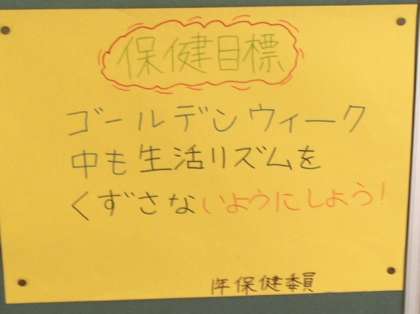 保健目標
ゴールデンウィーク
中も生活リズムを
くずさないようにしよう!
1年保健委員